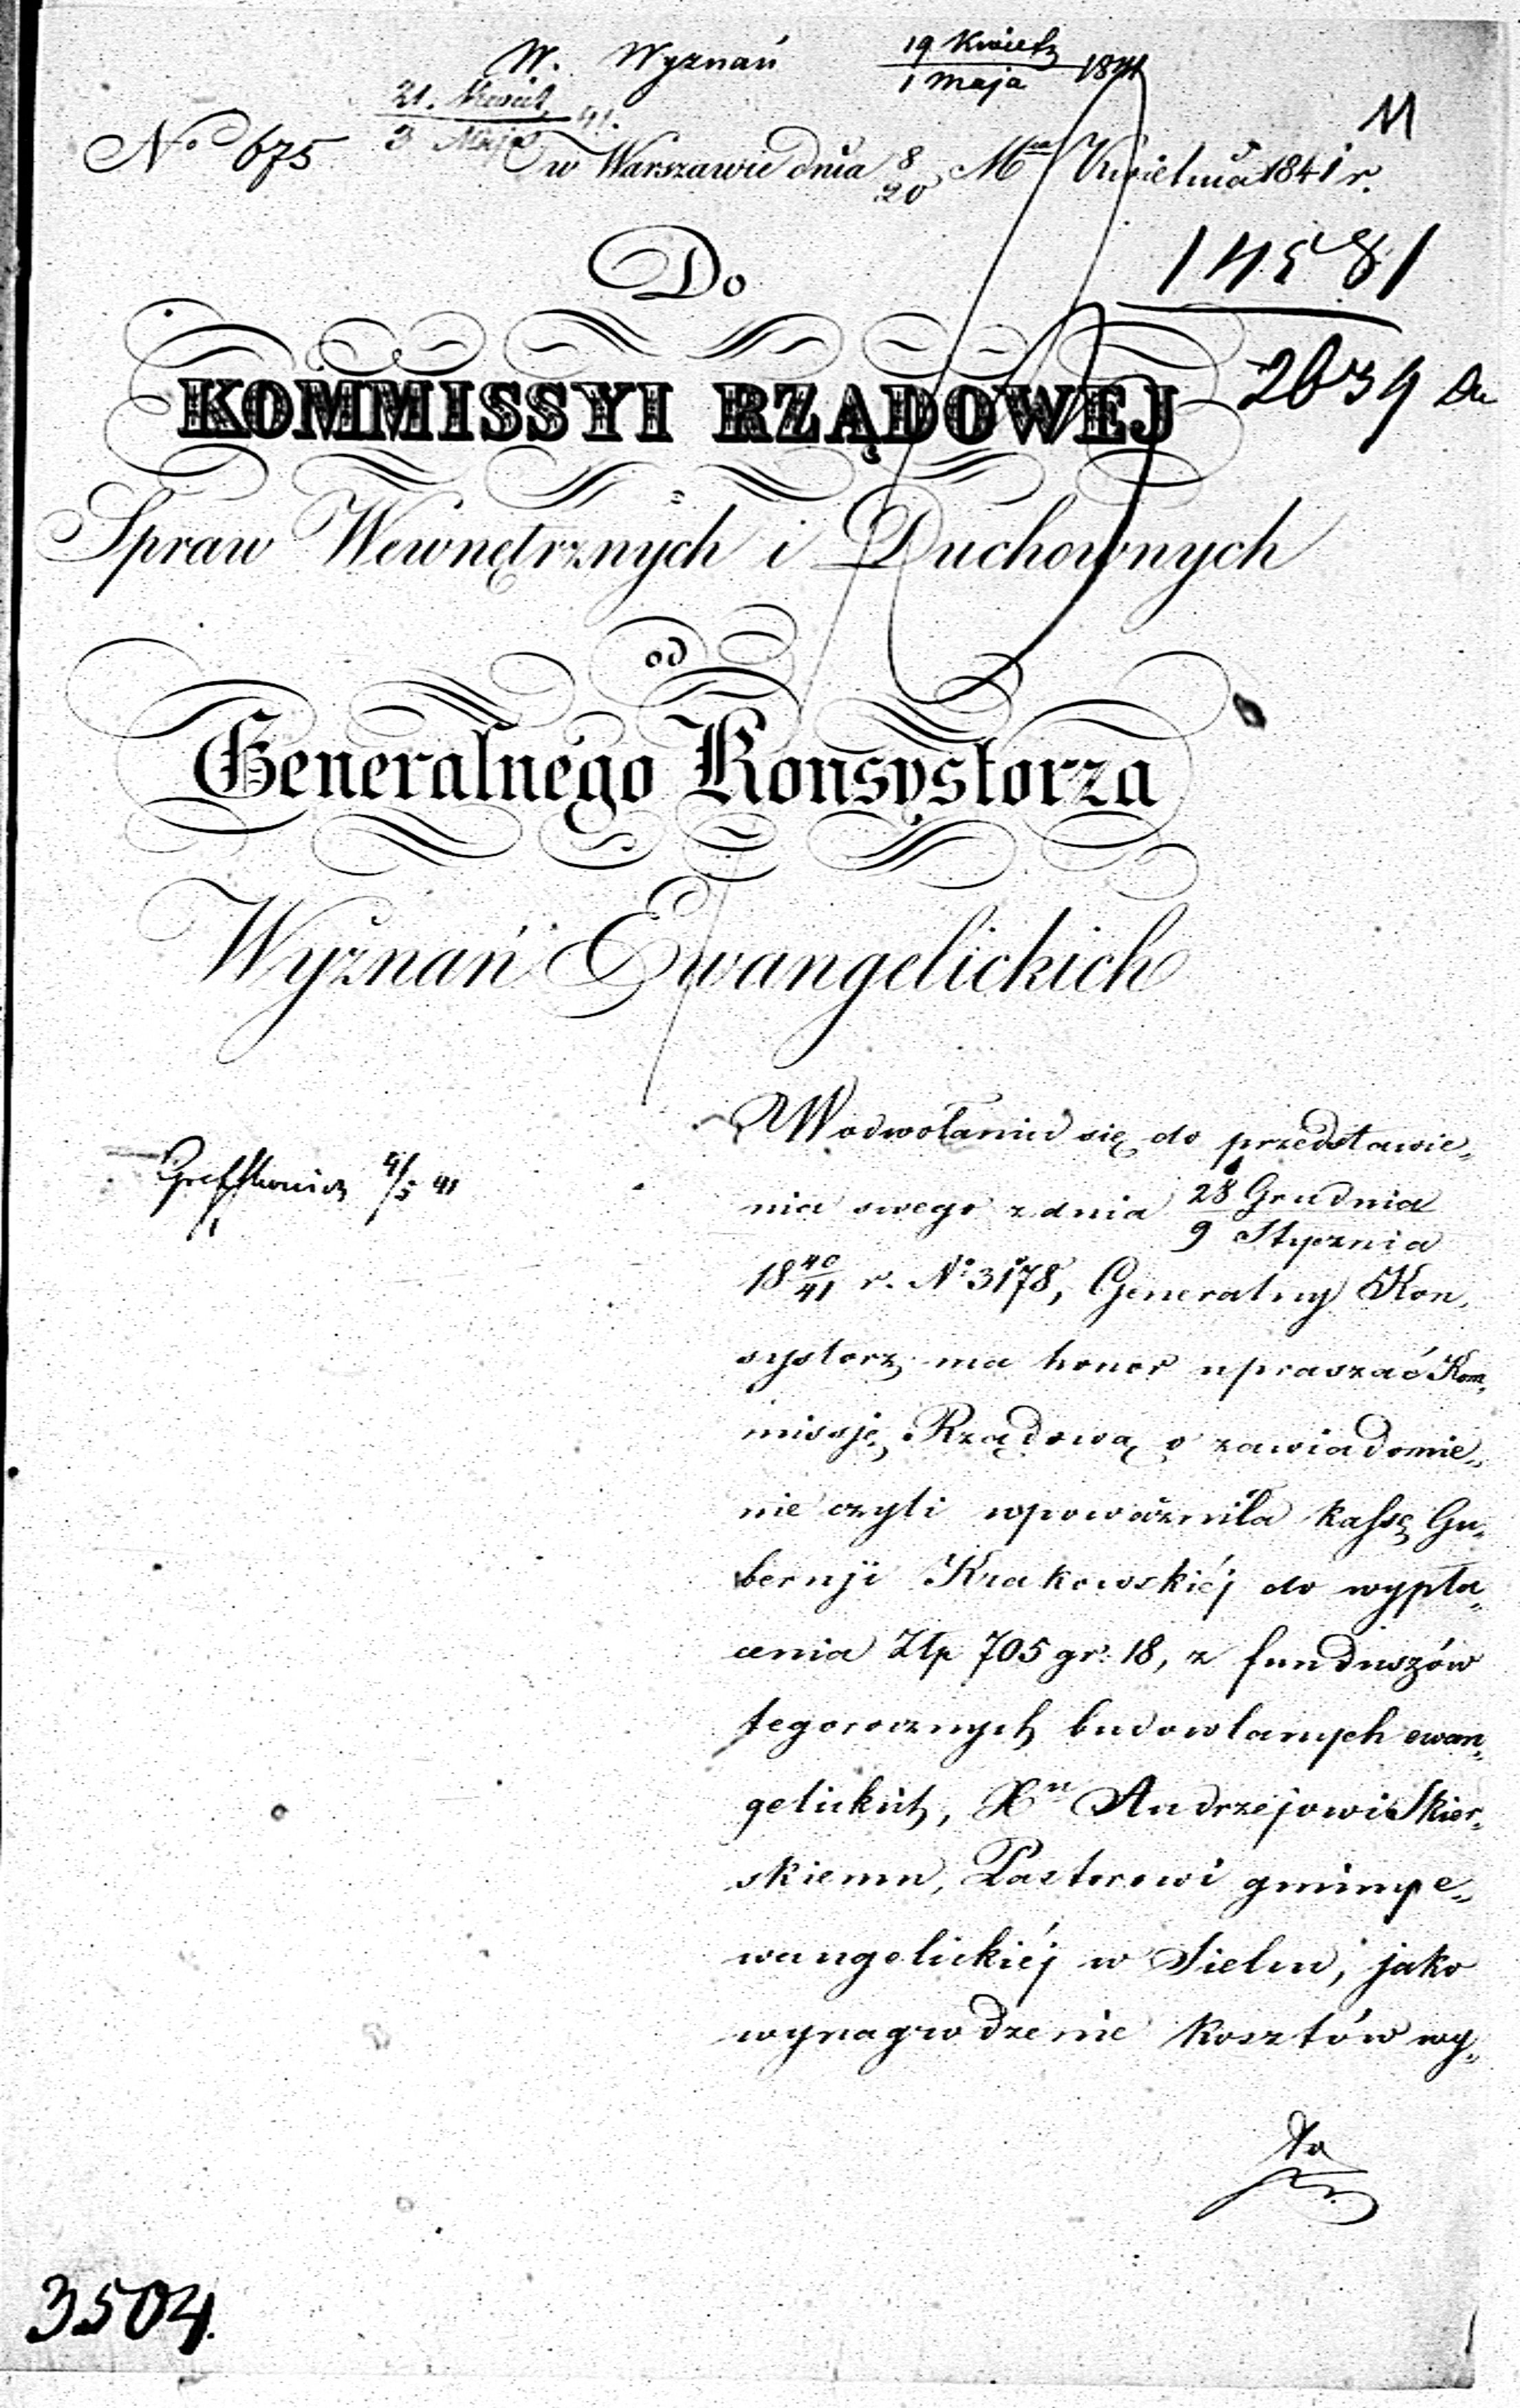 W. Wyznań 19 Kwiet 1841
1 Maja
21. Kwiet 41.
3 Maja
11
No 675 w Warszawie dnia 8 Mca Kwietnia 1841 r.
20
Do
14581
2639
KOMMISSYI RZĄDOWEJ
Spraw Wewnętrznych i Duchownych
od
Generalnego Konsystorza
Wyznań Ewangelickich
W odwołaniu się do przedstawie„
nia swego z dnia 28 Grudnia
9 Stycznia
4/5 41
18 40/41 r. No 3178, Generalny Kon„
systorz ma honor upraszać Kom„
missję Rządową o zawiadomie„
nie czyli upoważniła kassę Gu„
bernji Krakowskiéj do wypła„
cenia Złp 705 gr. 18, z funduszów
tegorocznych budowlanych ewan„
gelickich, Xu Andrzejowi Skier„
skiemu, Pastorowi gminy e„
wangelickiéj w Sielcu, jako
wynagrodzenie kosztów wy„
3504.